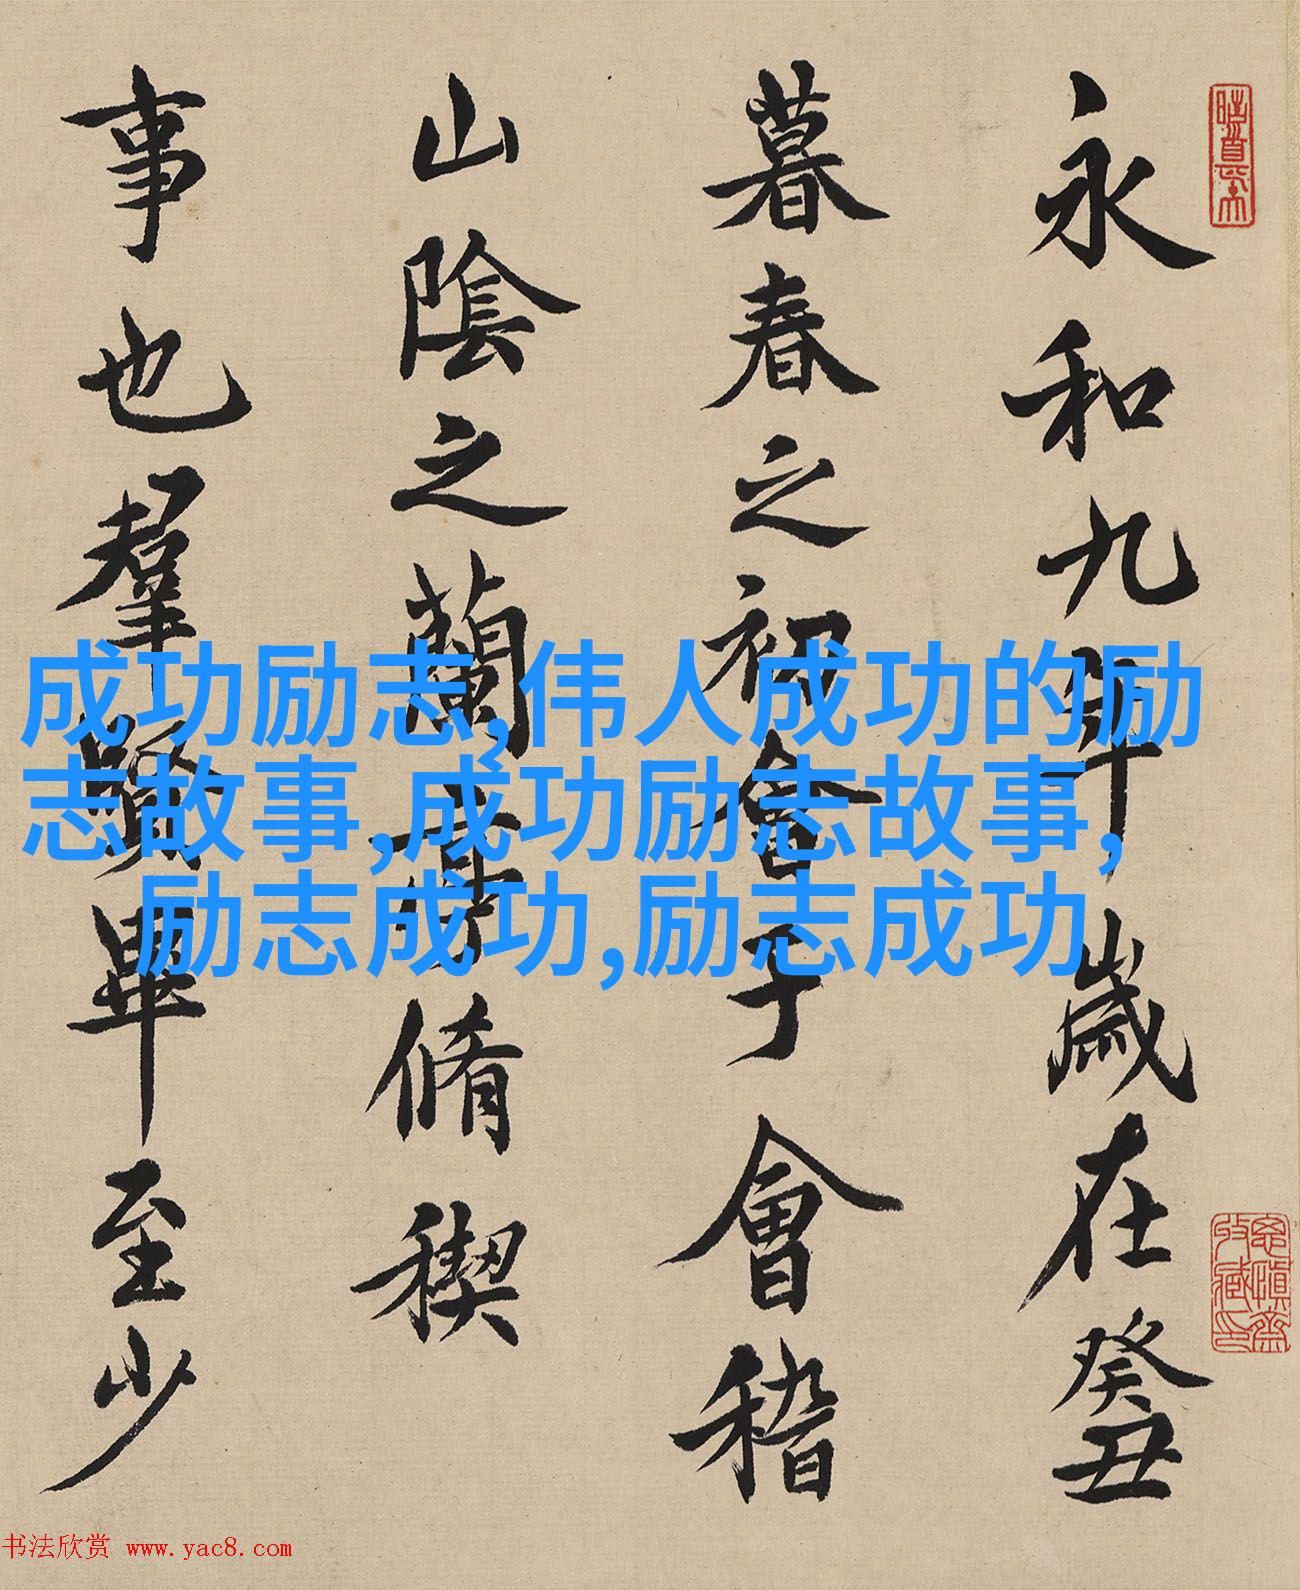 永和九年歲在癸丑
暮春之初會于會稽
山陰之蘭亭脩稧
事也羣賢畢至少
成功励志,伟人成功的励
志故事,成功励志故事,
励志成功,励志成功
书法欣赏 www.yac8.com